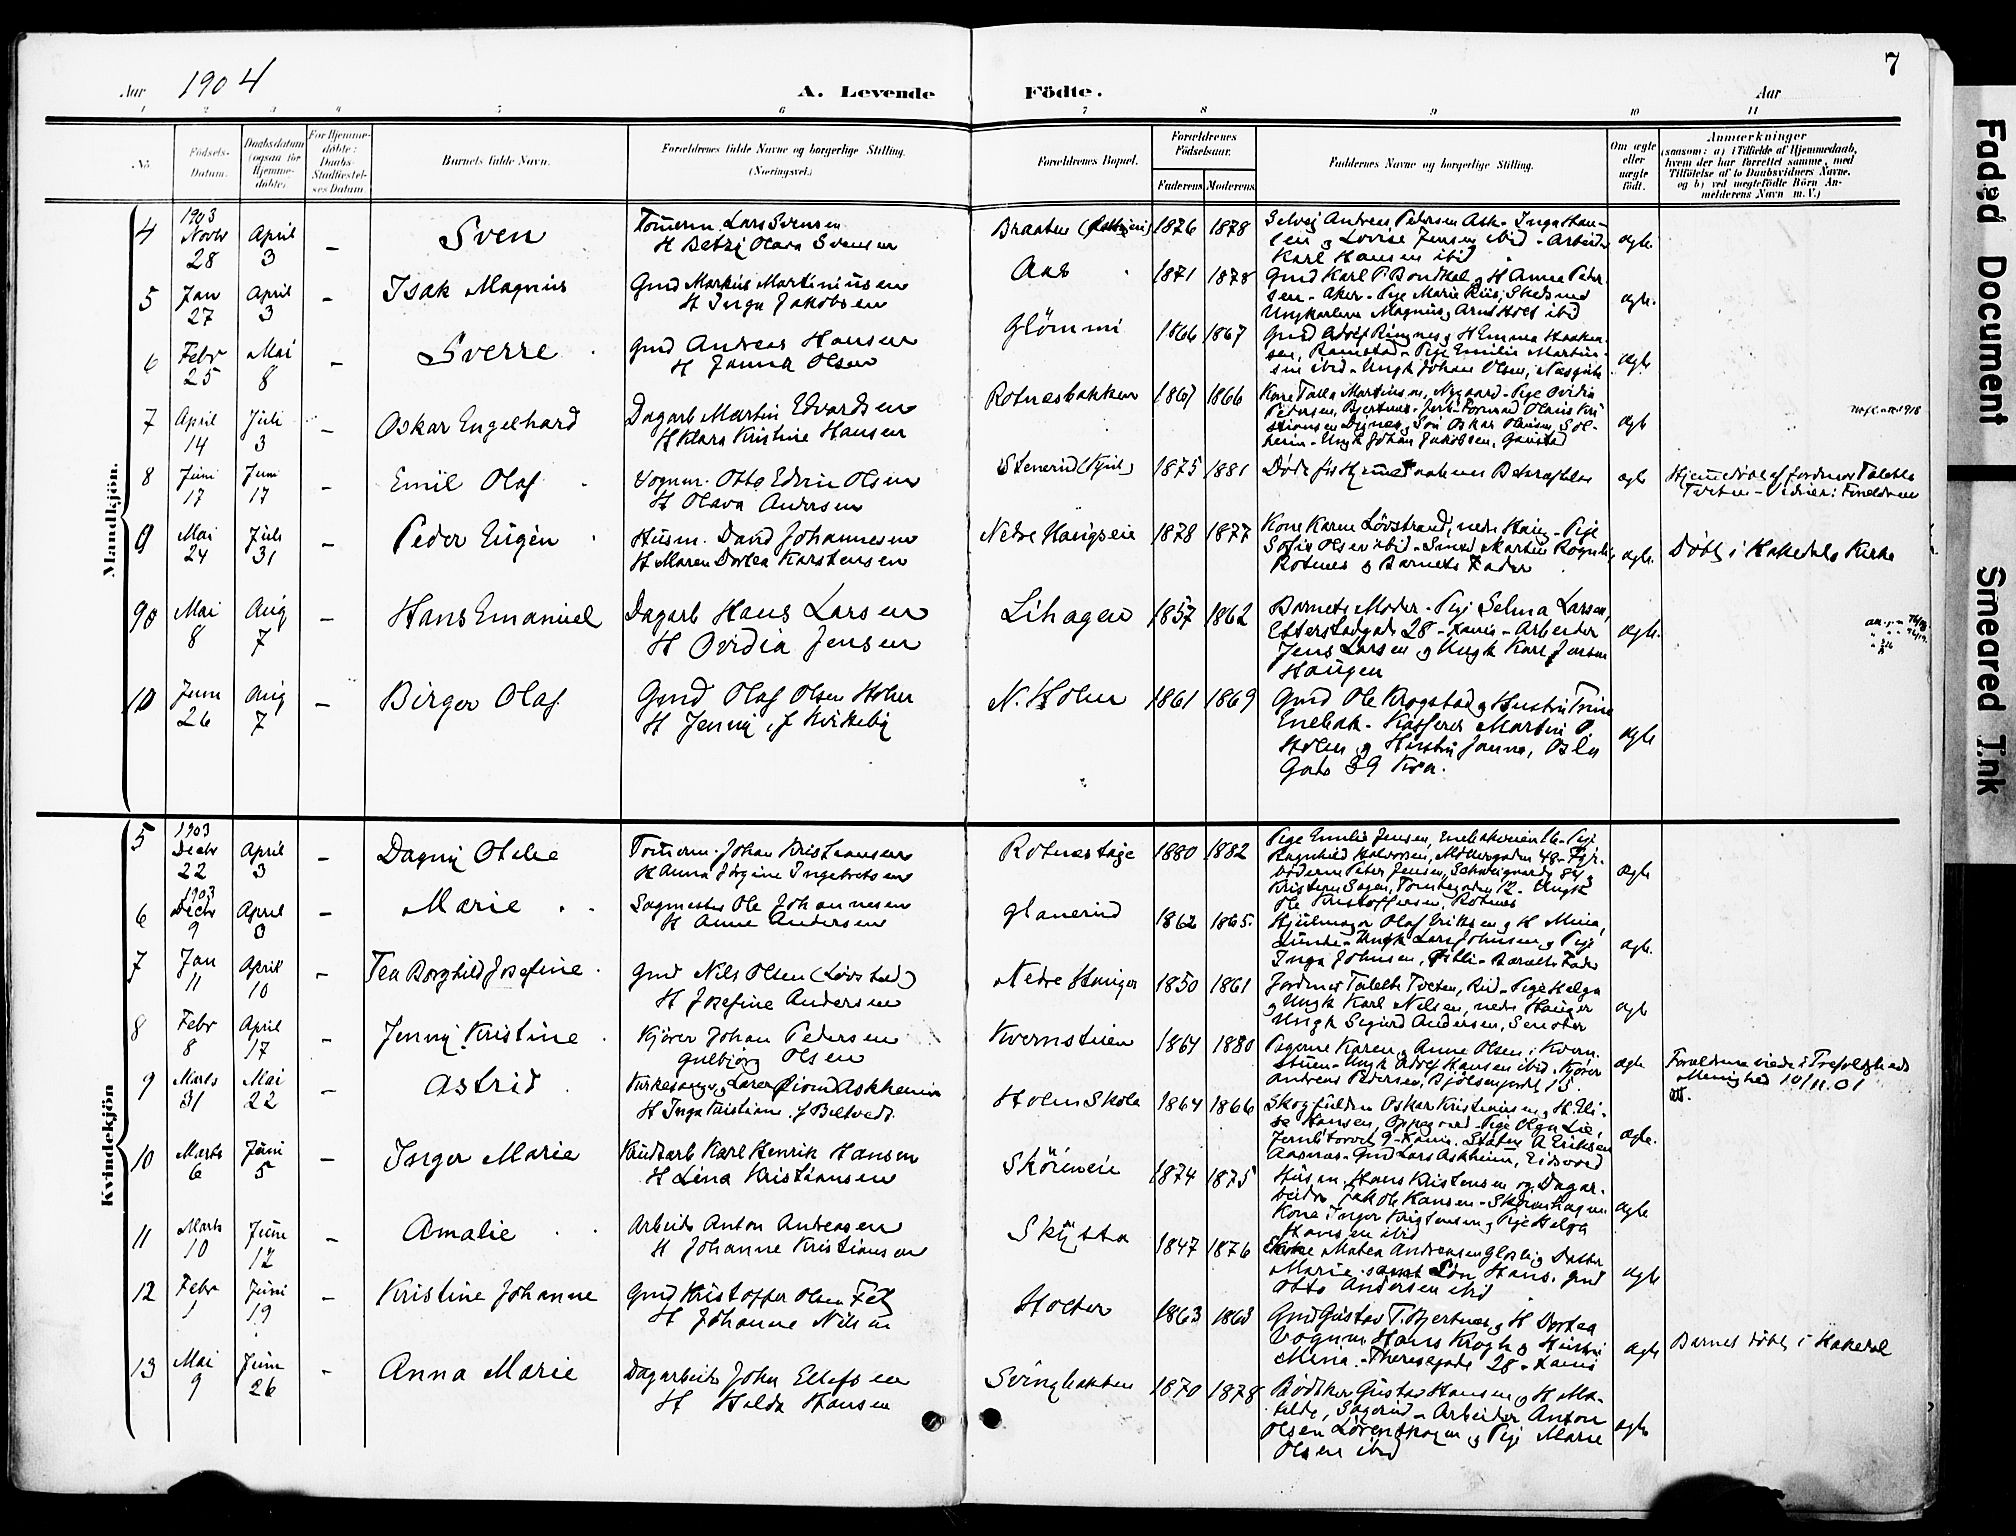 7
Aar 1904 A. Levende Födte. Aar
1 2 3 4 5 6 7 8 9 10 11
No. Födsels-Datum. Daabsdatum (ogsaa for Hjemme-döbte) For Hjemme-döbte: Daabs-Stadfæstel-ses Datum Barnets fulde Navn. Forældrenes fulde Navne og borgerlige Stilling. (Næringsvei.) Forældrenes Bopæl. Forældrenes Födselsaar. Faderens Moderens Faddernes Navne og borgerlige Stilling. Om ægte eller uægte födt. Anmærkninger
(saasom: a) i Tilfælde af Hjemmedaab,
hvem der har forrettet samme, med
Tilföielse af to Daabsvidners Navne,
og b) ved uægtefödte Börn An-
melderens Navn m. V.)
Mandkjön.
4 1903 Novbr 28 April 3 – Sven
Tömerm Lars Svensen
H Betzy Olava Svensen
Braaten 1876 1878
Selvej Andreas Petersen Ask - Inga Han-
sen og Lovise Jensen ibid - Arbeider
Karl Hansen ibid
ægte
5 Jan 27 April 3 – Isak Magnus
Gmd Markus Martiniusen
H Inga Jakobsen
Aas 1871 1878
Gmd Karl P Bondkal og H Anne Peder-
sen - Aker - Pige Marie Riis, Skedsmo
Ungkarlene Magnus og Arnt Holt ibid
ægte.
6 Febr 25 Mai 8 – Sverre
Gmd Andreas Hansen
H Janna Olsen
Glömmi 1866 1867
Gmd Adolf Ringnes og H Emma Haaken-
sen, Ramstad - Pige Emilie Martin-
sen ibid - Ungk Johan Olsen,
ægte
7 April 14 Juli 3 – Oskar Engelhard
Dagarb Martin Edvardsen
H Klara Kristine Hansen
Rotnesbakken 1867 1866
Kone Talla Martinsen, Nygaard - Pige Ovidia
Pedersen, Bjertnes - Jernb. Formand Olaus Kri
stiansen Dignes og Søn Oskar Olausen, Sol-
heim - Ungk Johan Jakobsen, Gaustad
ægte
8 Juni 17 Juni 17 – Emil Olaf
Vognm. Otto Edvin Olsen
H Olava Andersen
Stenerud 1875 1881
Døde før Hjemmedaabens Bekræftelse
ægte
Hjemmedøbt af Jordmor Talette
Tveten - Vidner: Forældrene
9 Mai 24 Juli 31 – Peder Eugen
Husm. David Johannesen
H Maren Dortea Karstensen
Nedre Haugseie 1878 1877
Kone Karen Løvstrand, nedre Haug - Pige
Sofie Olsen ibid - Smed Martin Rognli,
Rotnes og Barnets Fader
ægte.
Døbt i Hakedals Kirke
10 Mai 8 Aug 7 – Hans Emanuel
Dagarb Hans Larsen
H Ovidia Jensen
Lihagen 1857 1862
Barnets Moder - Pige Selma Larsen,
Etterstadgade 28 - Kania - Arbeider
Jens Larsen og Ungk Karl Jensen
Haugen
ægte.
10 Juni 26 Aug 7 – Birger Olaf
Gmd Olaf Olsen Holm
H Jenny, f Kvikeby
N. Holm 1861 1869
Gmd Ole Krogstad og Hustru Trine
Enebak - Kasserer Martin P.
Holm og Hustru Janna, Oslo
Gade 39 Kra.
ægte
Kvindekjön
5 1903 Decbr 22 April 3 – Dagny Otilie
Tömerm. Johan Kristiansen
H Anna Jørgine Ingebretsen
Rotnestaje 1880 1882
Pige Emilie Jensen, Enebakveien 16 - Pige
Ragnhild Halvorsen, Møllergaden 48 -
bøderen Peter Jensen, Schweigaardsg 84 og
Kristian Sagen, Tomtegaden 12 - Ungk
Ole Kristoffersen, Rotnes
ægte
6 1903 Decbr 9 April 3 – Marie
Sagmester Ole Johannesen
H Anne Andersen
Glanerud 1862 1865.
Hjulmager Olaf Eriksen og H Mina,
Lunde - Ungk Lars Johnsen og Pige
Inga Johnsen, - Barnets Fader
ægte.
7 Jan 11 April 10 – Tea Borghild Josefine
Gmd Nils Olsen (Løvstad)
H Josefine Andersen
Nedre Hauger 1850 1861
Jordmor Talette Tveten, Rud - Pige Helga
og Ungk Karl Nilsen, nedre Hauger
Ungk Sigurd Andersen,
ægte
8 Febr 8 April 17 – Jenny Kristine
Kjører Johan Pedersen
Gulbjørg Olsen
Kvernstuen 1864 1880
Pigerne Karen og Anne Olsen i Kvern
stuen - Ungk Adolf Hansen ibid. Kjører
Andreas Pedersen, Bjølsengaden 15.
ægte
Forældrene viede i Trefoldigheds
Menighed 10/11.01
9 Marts 31 Mai 22 – Astrid
Kirkesanger og Lærer Eivind Askheim
H Inga Kristiane f Beltvedt.
Holm Skole 1864 1866
Skogfulden Oskar Kristiansen og H Eli-
se Hansen, Oppegaard - Pige Olga Lie,
Jernbtorvet 9 - Kania. A Eriksen
Aasnes - Gmd Lars Askheim, Eidsvold
ægte.
10 Marts 6 Juni 5 – Inger Marie
Karl Henrik Hansen
H Lina Kristiansen
Skøieneie 1874 1875
Husm. Hans Kristensen og Dagar-
beider Jakob Hansen - Skøienhagen
Kone Inger Kristensen og Pige Helga
Hansen ibid
ægte
11 Marts 10 Juni 12 – Amalie
Arbeider Anton Andreasen
H Johanne Kristiansen
Skytta 1847 1876
Enke Matea Andreasen Glosli og Datter
Marie samt Søn Hans. Gmd
Otto Andersen ibid
ægte
12 Febr 1 Juni 19 – Kristine Johanne
Gmd Kristoffer Olsen
H Johanne Nilsen
Holter 1863 1863
Gmd Gustav T. Bjertnes og H Dortea
Vognm. Hans Krogh og Hustru
Mina - Theresegade 28 - Kania
ægte
Barnet døbt i Hakedal
13 Mai 9 Juni 26 – Anna Marie
Dagarbeider John Ellefsen
H Hilda Hansen
Svingbakken 1870 1878
Bødtker Gustav Hansen og H Ma-
tilde, Sagerud - Arbeider Anton
Olsen Lørenskogen og Pige Marie
Olsen ibid
ægte
Faded Document
Smeared Ink